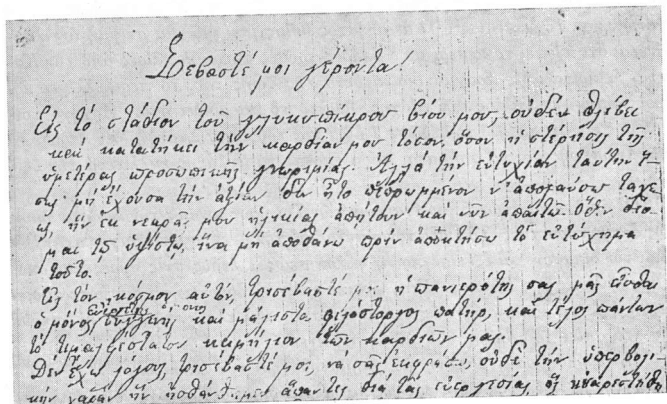 Σεβαστέ μοι γέροντα!
Εἰς τὸ στάδιον τοῦ γλυκυπίκρου βίου μου, οὐδὲν θλίβει
καὶ κατατήκει τὴν καρδίαν μου τόσον, ὅσον ἡ στέρησις τῆς
ὑμετέρας προσωπικῆς γνωριμίας. Ἀλλὰ τὴν εὐτυχίαν ταύτην ἴ-
σως μὴ ἔχουσα τὴν ἀξίαν δὲν ἦτο πεπρωμένον ν' ἀπολαύσω
ἣν ἐκ νεαρᾶς μου ἡλικίας ἀπῄτουν καὶ νῦν ἀπαιτῶ. Ὅθεν δέο-
μαι τῷ ὑψίστῳ, ἵνα μὴ ἀποθάνω πρὶν ἀποκτήσω τὸ εὐτύχημα
τοῦτο.
Εἰς τὸν κόσμον αὐτόν, τρισέβαστέ μοι ἡ πανιερότης σας μᾶς εἶσθε
ὁ μόνος εὐεργέτης καὶ μάλιστα φιλόστοργος πατήρ, καὶ τέλος πάντων
τὸ τιμαλφέστατον κειμήλιον τῶν καρδιῶν μας.
Δὲν ἔχω λόγους, τρισέβαστέ μοι, νὰ σᾶς ἐκφράσω, οὐδὲ τὴν ὑπερβολι-
κὴν χαρὰν ἣν ᾐσθάνθημεν ἅπαντες διὰ τὰς εὐεργεσίας